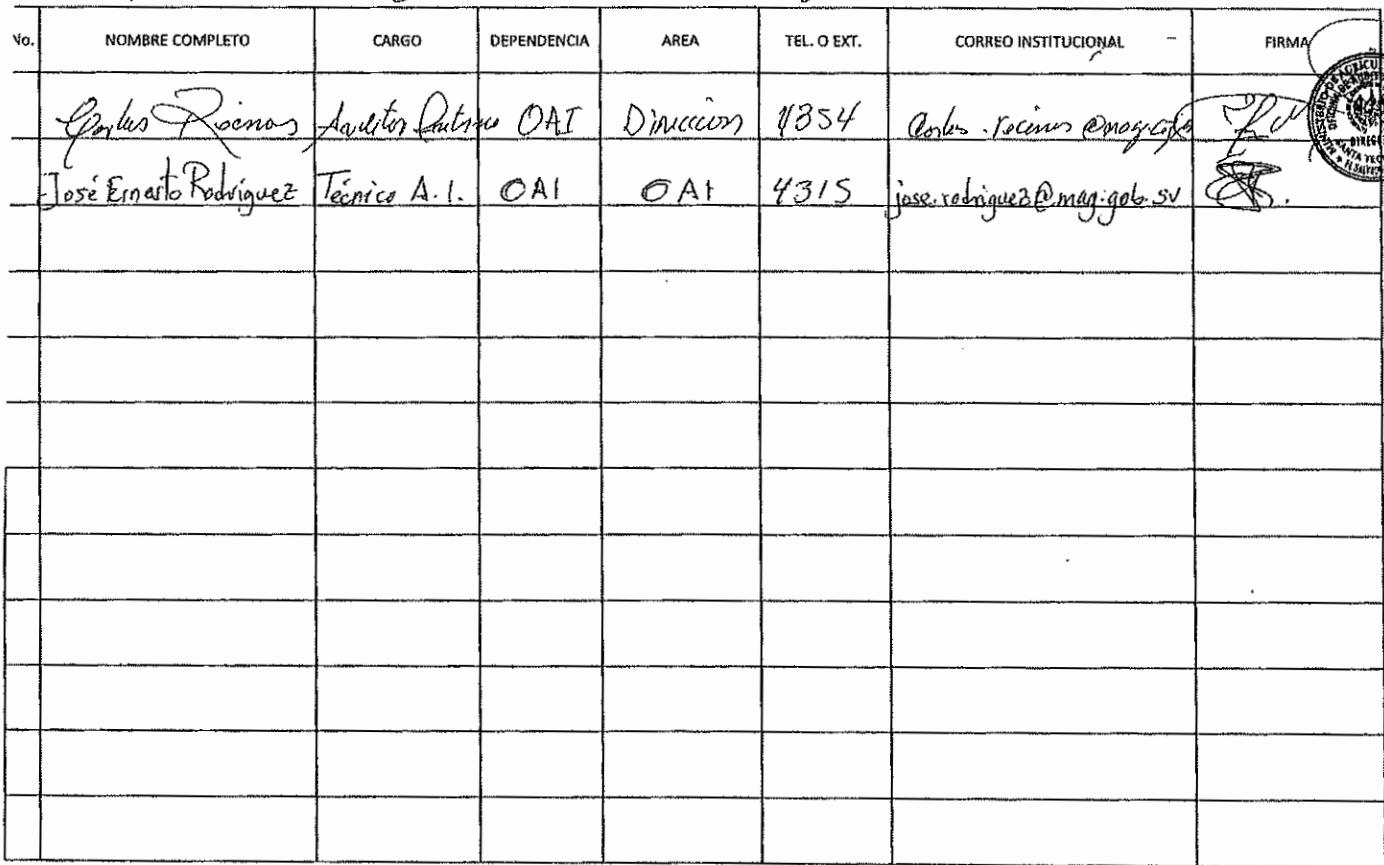 No. NOMBRE COMPLETO CARGO DEPENDENCIA AREA TEL. O EXT. CORREO INSTITUCIONAL FIRMA
Carlos Auditor OAI Dirección 4354
José Ernesto Rodríguez Técnico A.I. OAI OAI 4315 jose.rodriguez@mag.gob.sv